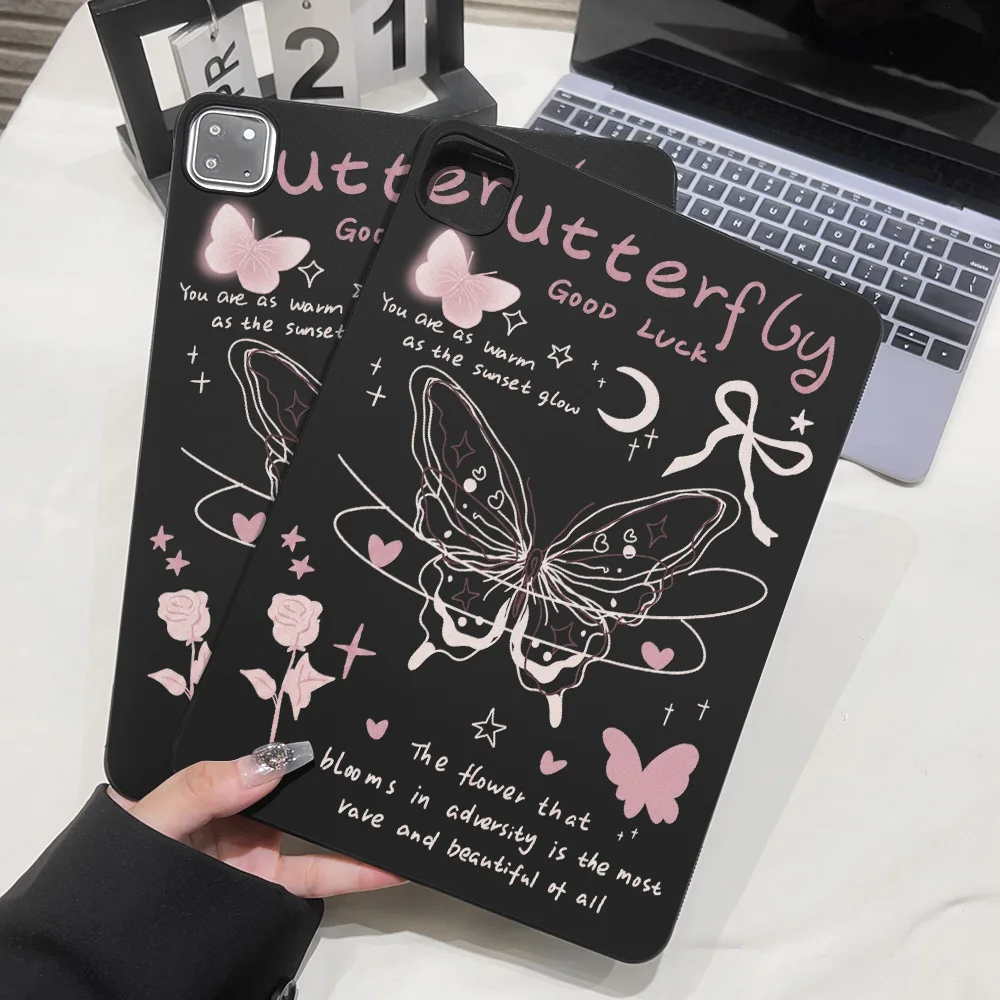 PR
2
1
utter
You are as warm
as the sunset
utterfly
GOOD LUCK
You are as warm
as the sunset glow
The flower that
blooms in adversity is the most
rare and beautiful of all
delete